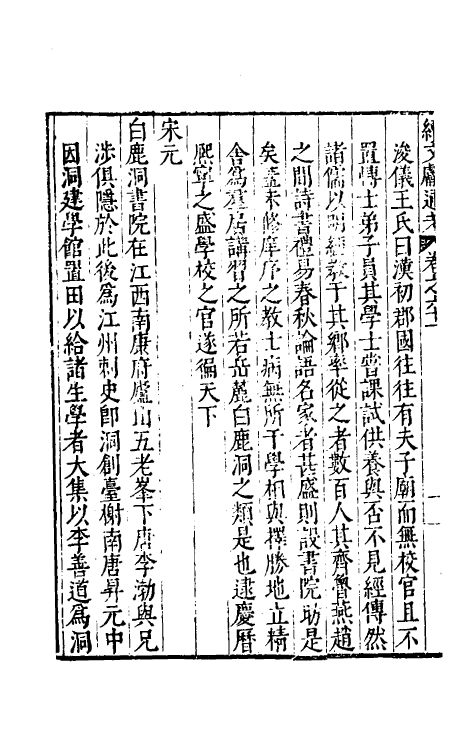 續文獻通考 卷之六十一
浚儀王氏曰漢初郡國往往有夫子廟而無校官且不
置博士弟子員其學士嘗課試供養與否不見經傳然
諸儒以明經教于其鄉率從之者數百人其齊魯燕趙
之間詩書禮易春秋論語名家者甚盛則設書院助是
矣蓋未修庠序之教士病無所于學相與擇勝地立精
舍為羣居講習之所若岳麓白鹿洞之類是也逮慶曆
熙寧之盛學校之官遂徧天下
宋元
白鹿洞書院在江西南康府廬山五老峯下唐李渤與兄
涉俱隱於此後為江州刺史卽洞創臺榭南唐昇元中
因洞建學館置田以給諸生學者大集以李善道為洞